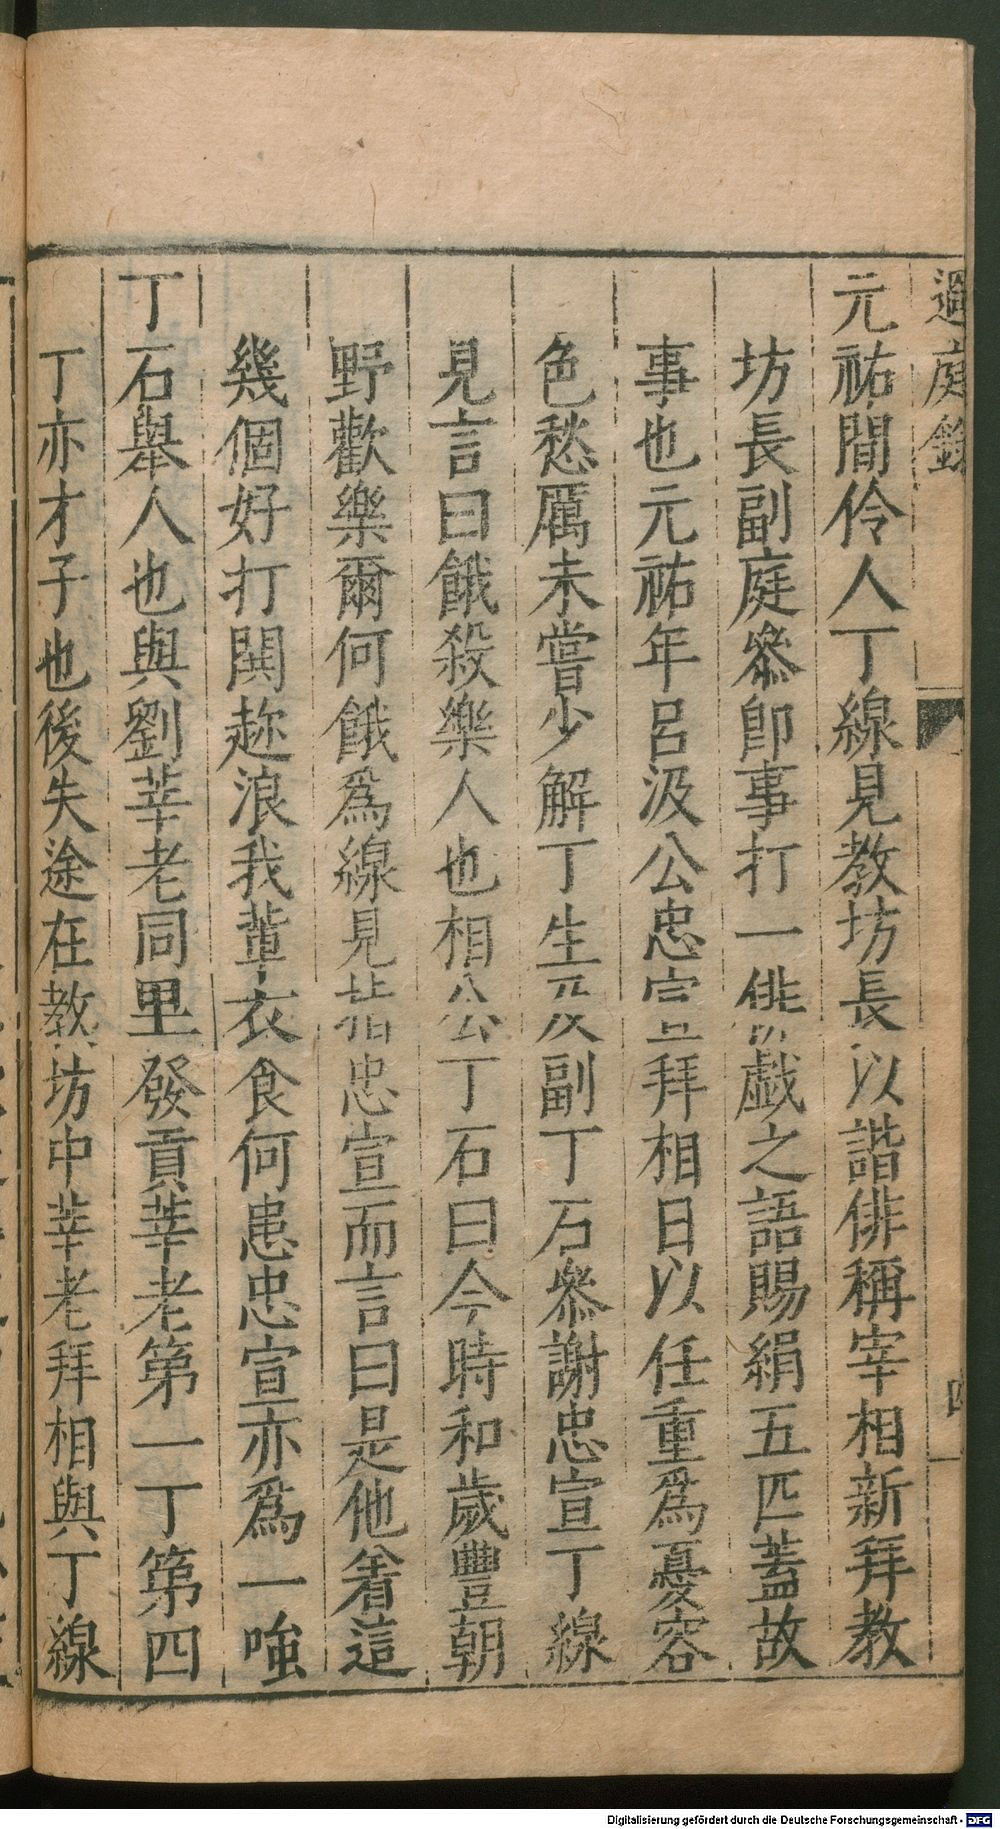 過庭錄
四
元祐間伶人丁線見教坊長以諧俳稱宰相新拜教
坊長副庭叅卽事打一俳戲之語賜絹五匹蓋故
事也元祐年呂汲公忠宣拜相日以任重爲憂容
色愁厲未嘗少解丁生及副丁石叅謝忠宣丁線
見言曰餓殺樂人也相公丁石曰今時和歲豐朝
野歡樂爾何餓爲線見指忠宣而言曰是他着這
幾個好打閧趂浪我輩衣食何患忠宣亦爲一㗛
丁石舉人也與劉莘老同里發貢莘老第一丁第四
丁亦才子也後失途在教坊中莘老拜相與丁線
Digitalisierung gefördert durch die Deutsche Forschungsgemeinschaft - DFG